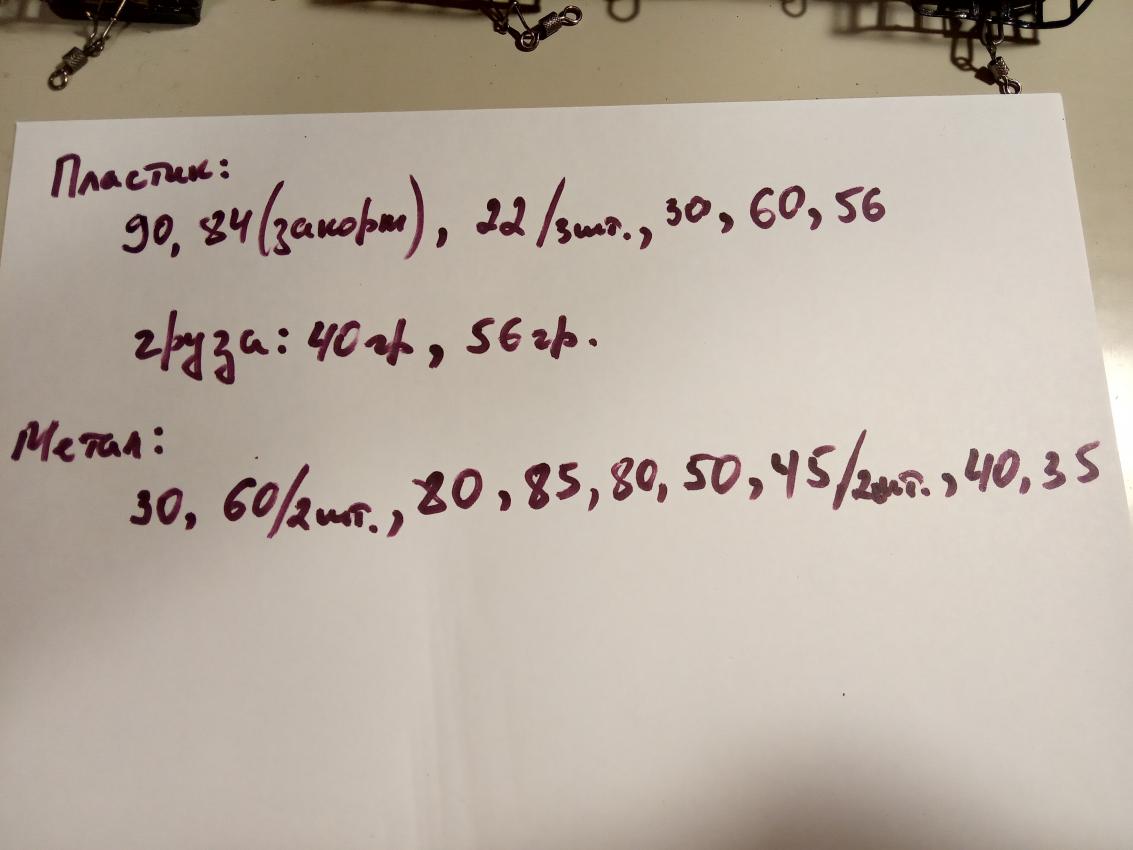 Пластик:
90, 84 (закорм), 22/3шт., 30, 60, 56
груза: 40гр, 56гр.
Метал:
30, 60/2шт., 80, 85, 80, 50, 45/2шт., 40, 35